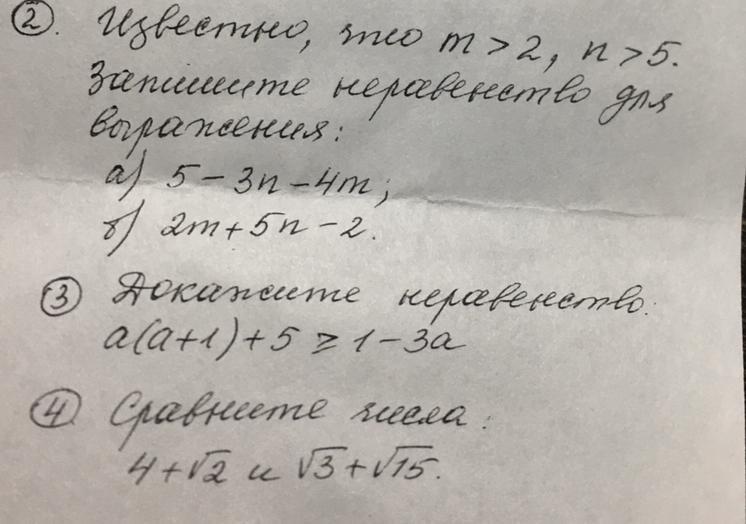 2. Известно, что m > 2, n > 5.
Запишите неравенство для
выражения:
а) 5 - 3n - 4m;
б) 2m + 5n - 2.
3 Докажите неравенство:
a(a+1) + 5 ≥ 1 - 3a
4 Сравните числа:
4 + √2 и √3 + √15.